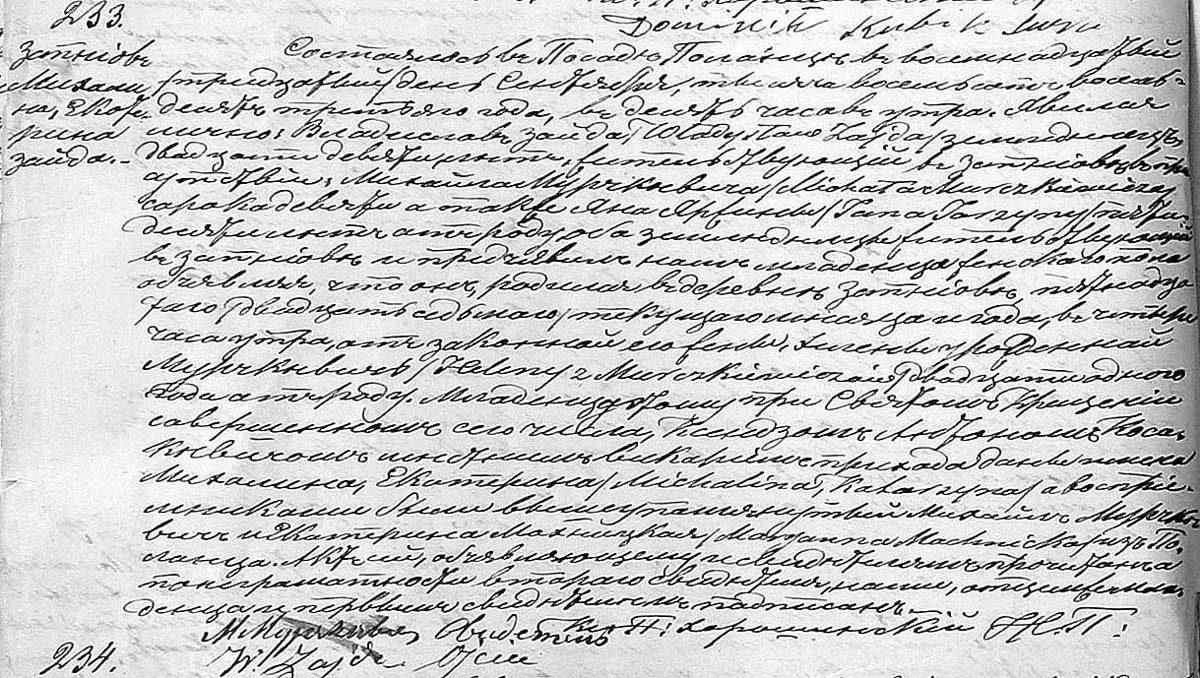 233.
Dominik Kubik
Затнiовъ
Михали
на, Екоте
рина
Зайда.-
Состоялось въ Посадѣ Поланцѣ въ восемнадцатый
/тридцатый/ день Сентября, тысяча восемьсотъ восемь-
десятъ третьяго года, въ десять часовъ утра. Явился
лично: Владиславъ Зайда, /Władysław Zajda/ земледѣлецъ
двадцати девяти лѣтъ, жительствующiй въ Затнiовѣ въ при
сутствiи: Михайла Мурчкѣвича /Michała Murczkiewicza/
сорока девяти а также Яна Яржины /Jana Jarzyny/ пяти-
десяти лѣтъ отъ роду, оба земледѣльцы жительствующiй
въ Затнiовѣ и предъявилъ намъ младенца женскаго пола
объявляя, что онъ, родился въ деревнѣ Затнiовѣ, пятнадца
таго /двадцать седьмого/ текущаго мѣсяца и года, въ четыре
часа утра, отъ законной его жены, Хелены урожденной
Мурчкѣвичъ /Heleny z Murczkiewiczów/ двадцати одного
года отъ роду. Младенцу этому при Святомъ Крещенiи
совершенномъ сего числа, Ксендзомъ Антономъ Коса-
кѣвичомъ мѣстнымъ викарiемъ прихода даны имена
Михалина, Екатерина /Michalina, Katarzyna/ а воспрiе-
мниками были вышеупамянутый Михаилъ Мурчкѣ
вичъ и Екатерина Махницкая /Maryanna Machnicka/ изъ По-
ланца. Актъ сей, объявляющему и свидѣтелямъ прочитанъ а
по неграматности втараго свидѣтеля, нами, отцемъ мла-
денца и первымъ свидѣтелемъ подписанъ.-
М Мурчкѣв Свидѣтель Кс. Н: Хорошинскiй Н. П:
W. Zajda Ojciec
234.